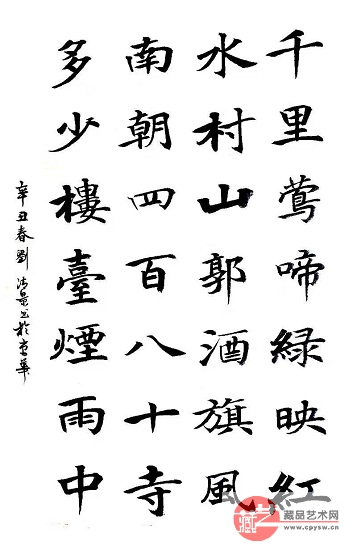 千里莺啼緑映紅
水村山郭酒旗風
南朝四百八十寺
多少樓臺煙雨中
辛丑春劉景书於京華
藏品艺术网
www.cpysw.cn